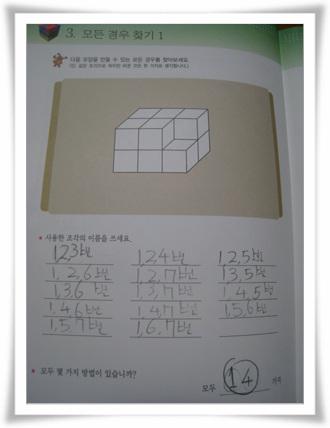 3. 모든 경우 찾기 1
다음 모양을 만들 수 있는 모든 경우를 찾아보세요.
사용한 조각의 이름을 쓰세요.
1,2,3번 1,2,4번 1,2,5번
1,2,6번 1,2,7번 1,3,5번
1,3,6번 1,3,7번 1,4,5번
1,4,6번 1,4,7번 1,5,6번
1,5,7번 1,6,7번
모두 몇 가지 방법이 있습니까?
모두 14 가지